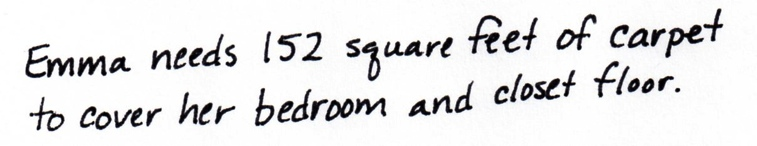 Emma needs 152 square feet of carpet
to cover her bedroom and closet floor.